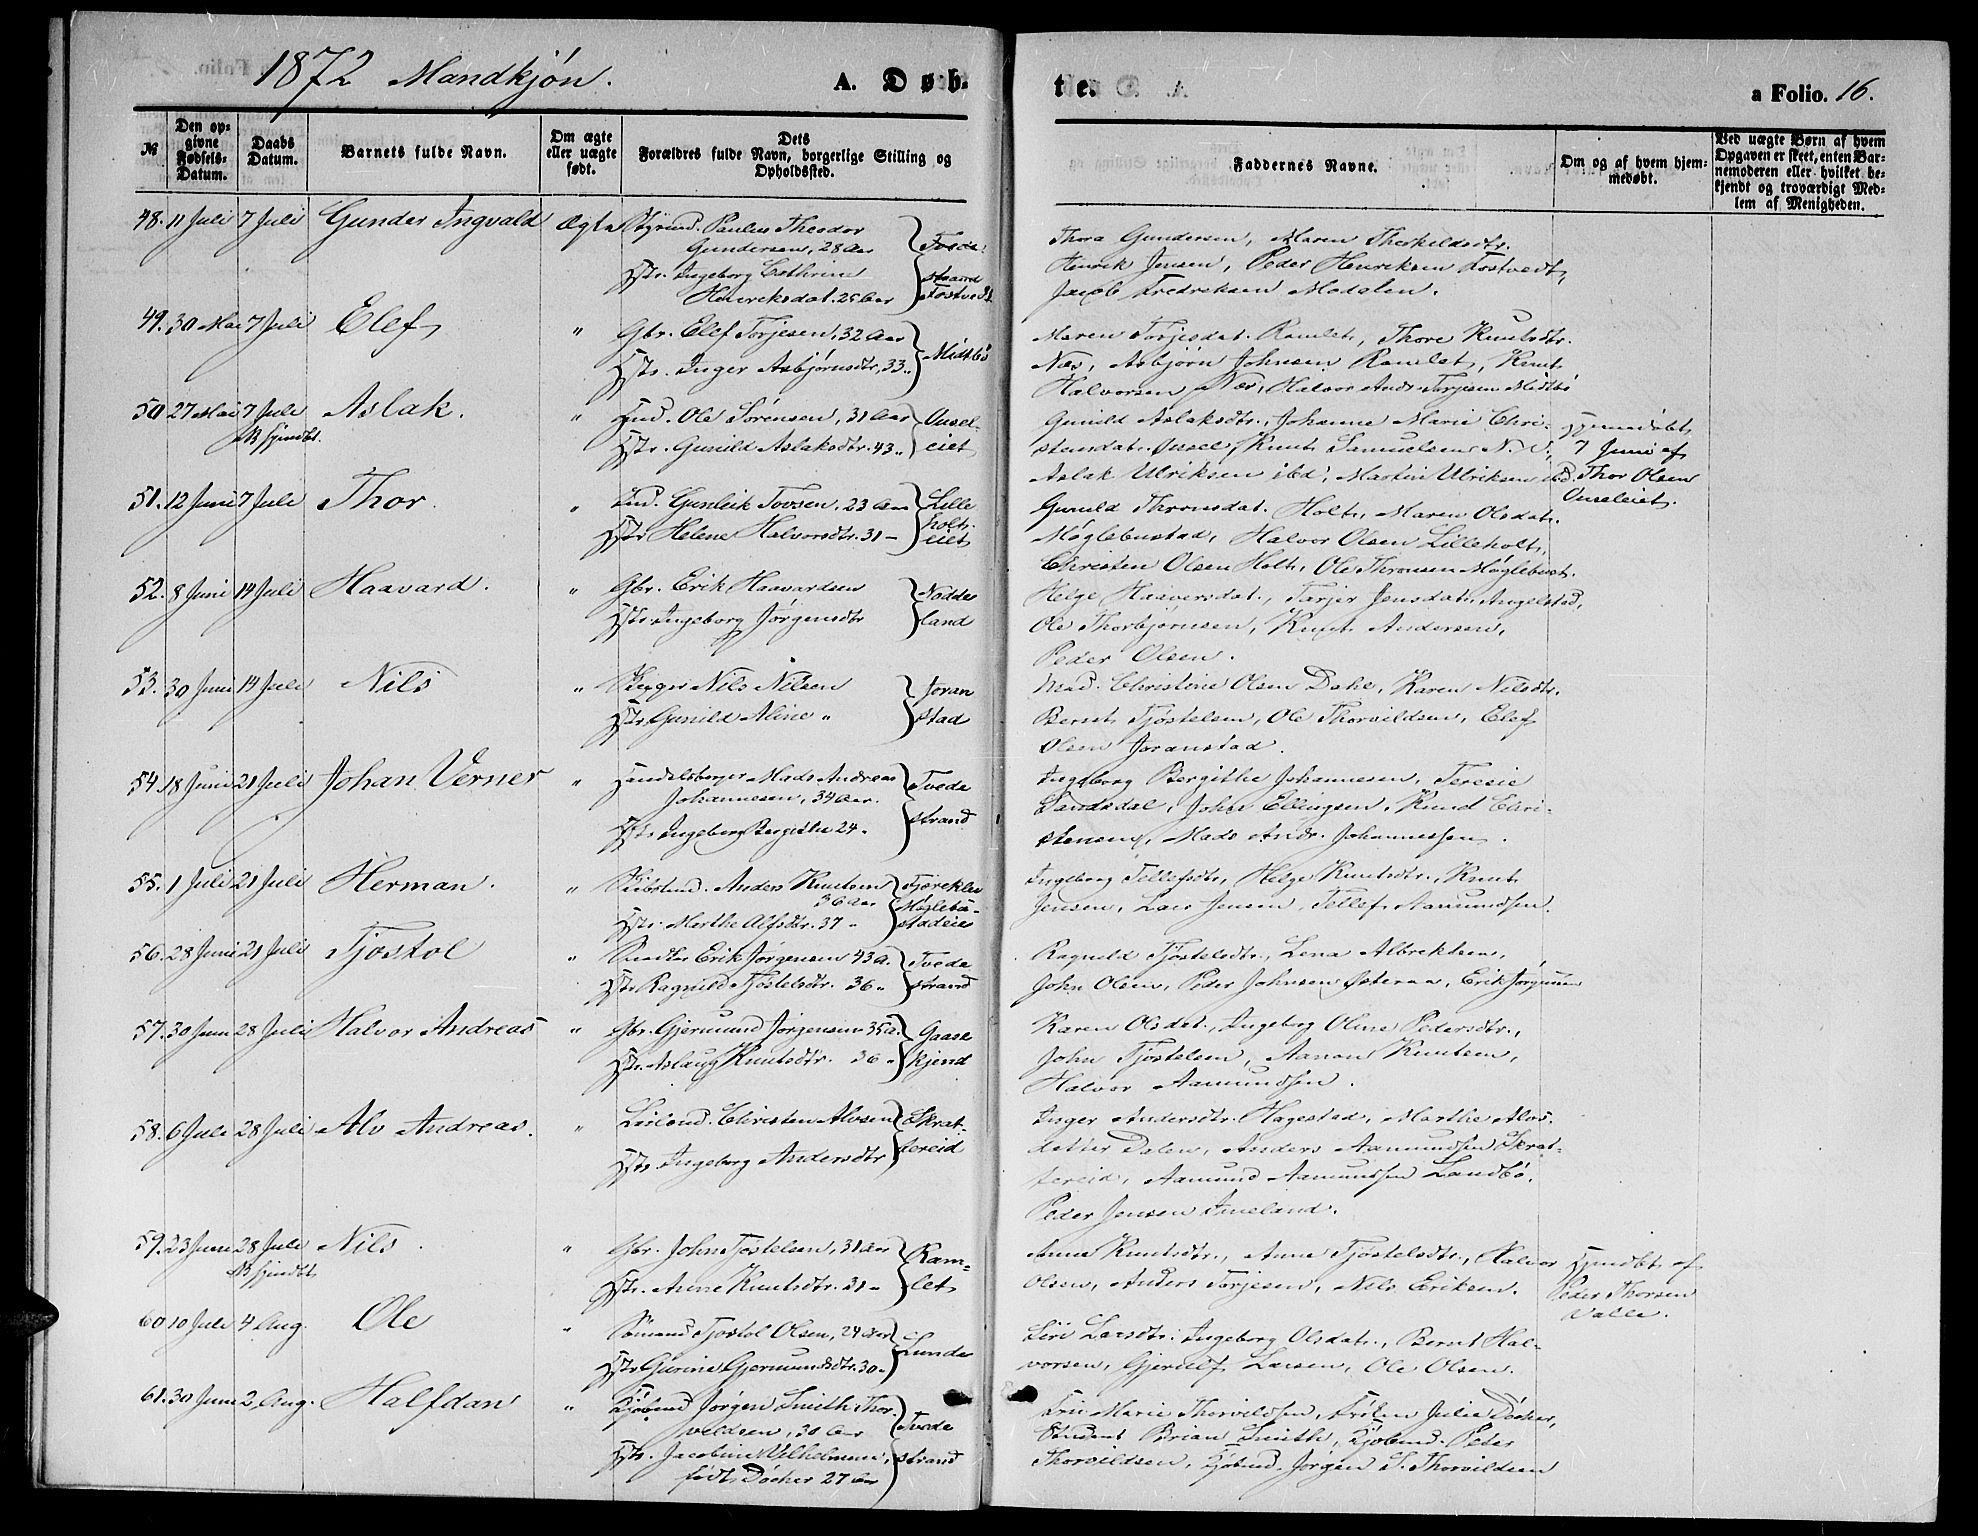 1872 Mandkjön. A. Døb-
te. a Folio. 16.
№ Den opgivne Fødsels-Datum. Daabs Datum. Barnets fulde Navn. Om ægte eller uægte født. Dets Forældres fulde Navn, borgerlige Stilling og Opholdssted.
Faddernes Navne. Om og af hvem hjemmedøbt. Ved uægte Børn af hvem Opgaven er skeet, enten Barnemoderen eller hvilket bekjendt og troværdigt Medlem af Menigheden.
48. 11 Juli 7 Juli Gunder Ingvald Ægte Styrmd. Paulus Theodor
Gundersen, 28 Aar
Hstr. Ingeborg Cathrine
Henriksdat. 26 Aar Fostvedt
Thora Gundersen, Maren Therkildsdtr.
Henrik Jensen, Peder Henriksen Fostvedt,
Jacob Fredreksen Modalen.
49. 30 Mai 7 Juli Elef " Gbr. Elef Torjesen, 32 Aar
Hstr. Inger Asbjørnsdtr, 33 " Midtbö
Maren Torjesdat. Ramlet, Thore Knutsdtr.
Næs, Asbjørn Johnsen Ramlet, Knut
Halvorsen Næs, Halvor Ands. Torjesen Midtbö
50 27 Mai 7 Juli Aslak. " Ind. Ole Sörensen, 31 Aar Ousel-
NB Hjmdbt. Hstr. Gunild Aslaksdtr. 43 " eiet
Gunild Aslaksdtr., Johanne Marie Chri-
stensdat. Ousel, Knut Samuelsen N. S.,
Aslak Ulriksen ibd., Martin Ulriksen ibd.
Hjemmedöbt
7 Juni af
Thor Olsen
Ouseleiet.
51. 12 Juni 7 Juli Thor. " Ind. Gunleik Tovsen, 23 Aar Lille
Hstr Helene Halvorsdtr. 31 – holt
eiet
Gunild Thronsdat. Holt, Maren Olsdat.
Møglebustad, Halvor Olsen Lilleholt,
Christen Olsen Holt, Ole Thronsen Møglebust.
52. 8 Juni 14 Juli Haavard. " Gbr. Erik Haavardsen Nødde
Hstr. Ingeborg Jørgensdtr land
Helge Haaversdat., Tarjer Jensdat. Angelstad,
Ole Thorbjørnsen, Knut Andersen,
Peder Olsen.
53. 30 Juni 14 Juli Nils " Nils Nilsen Joran
Hstr Gunild Aline " stad
Mad. Christine Olsen Dahl, Karen Nilsdtr.
Bernt Tjöstelsen, Ole Thorvildsen, Elef
Olsen Joranstad.
54. 18 Juni 21 Juli Johan Verner " Handelsborger Mads Andreas Tvede
Johannesen, 34 Aar. strand
Hstr. Ingeborg Bergithe 24 "
Ingeborg Bergithe Johannesen, Teresie
Landsdal, John Ellingsen, Knud Chri-
stensen, Mads Andr. Johannessen.
55. 1 Juli 21 Juli Herman. " Anders Knutsen Fjæreklev
36 Aar Møglebu-
Hstr. Marthe Alfsdtr. 37 " stadeiet
Ingeborg Tellefsdtr, Helge Knutsdtr., Knut
Jensen, Lars Jensen, Tellef Aamundsen.
56. 28 Juni 21 Juli Tjöstol " Erik Jørgensen 43 A. Tvede
Hstr Ragnild Tjöstelsdtr. 36 " strand
Ragnild Tjöstelsdtr., Lena Albrektsen,
John Olsen, Peder Johnsen Österaa, Erik Jörgensen
57. 30 Juni 28 Juli Halvor Andreas " Gbr. Gjermund Jørgensen 35 A. Gaase
Hstr. Aslaug Knutsdtr. 36 " kjend
Karen Olsdat., Ingeborg Oline Pedersdtr.,
John Tjöstelsen, Aanon Knutsen,
Halvor Aamundsen.
58. 6 Juli 28 Juli Alv Andreas. " Leilend. Christen Alvsen Skrat-
Hstr Ingeborg Andersdtr tereid
Inger Andersdtr. Hagestad, Marthe Alvs-
datter Dalen, Anders Aamundsen Skrat-
tereid, Aamund Aamundsen Landbö,
Peder Jensen Imeland.
59. 23 Juni 28 Juli Nils. " Gbr. John Tjöstelsen, 31 Aar Ram-
NB Hjmdbt. Hstr. Anne Knutsdtr. 31 – let
Anne Knutsdtr., Anne Tjöstelsdtr., Halvor
Olsen, Anders Torjesen, Nils Eriksen.
Hjmdbt. af
Peder Thorsen
Valle.
60 10 Juli 4 Aug. Ole " Sömand Tjöstol Olsen, 24 Aar Lunde
Hstr Gurine Gjermundsdtr. 30 –
Siri Larsdtr. Ingeborg Olsdat., Bernt Hal-
vorsen, Gjerulf Larsen, Ole Olsen.
61. 30 Juni 2 Aug. Halfdan " Kjöbmd Jörgen Smith Thor-
vildsen, 30 Aar Tvede
Hstr. Jacobine Wilhelmine, strand
födt Döcker 27 Aar
Fru Marie Thorvildsen, Fröken Julie Döcker,
Student Brian Smith, Kjöbmd. Peder
Thorvildsen, Kjöbmd. Jörgen S. Thorvildsen